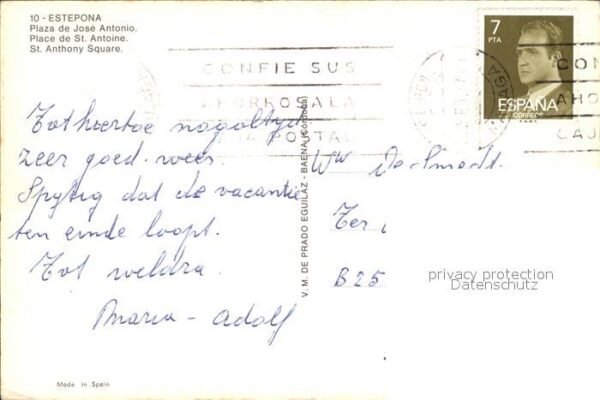 10 - ESTEPONA
Plaza de José Antonio.
Place de St. Antoine.
St. Anthony Square.
CONFIE SUS
AHORROS A LA
POSTAL
7
PTA
ESPAÑA
CORREOS
CON
AHO
CAJ
Tot hiertoe nog altijd
zeer goed weer.
Spijtig dat de vacantie
ten einde loopt.
Tot weldra.
Maria - Adolf
V. M. DE PRADO EGUILAZ - BAENA (Córdoba)
Ww De Smedt.
Ter
B25
privacy protection
Datenschutz
Made in Spain